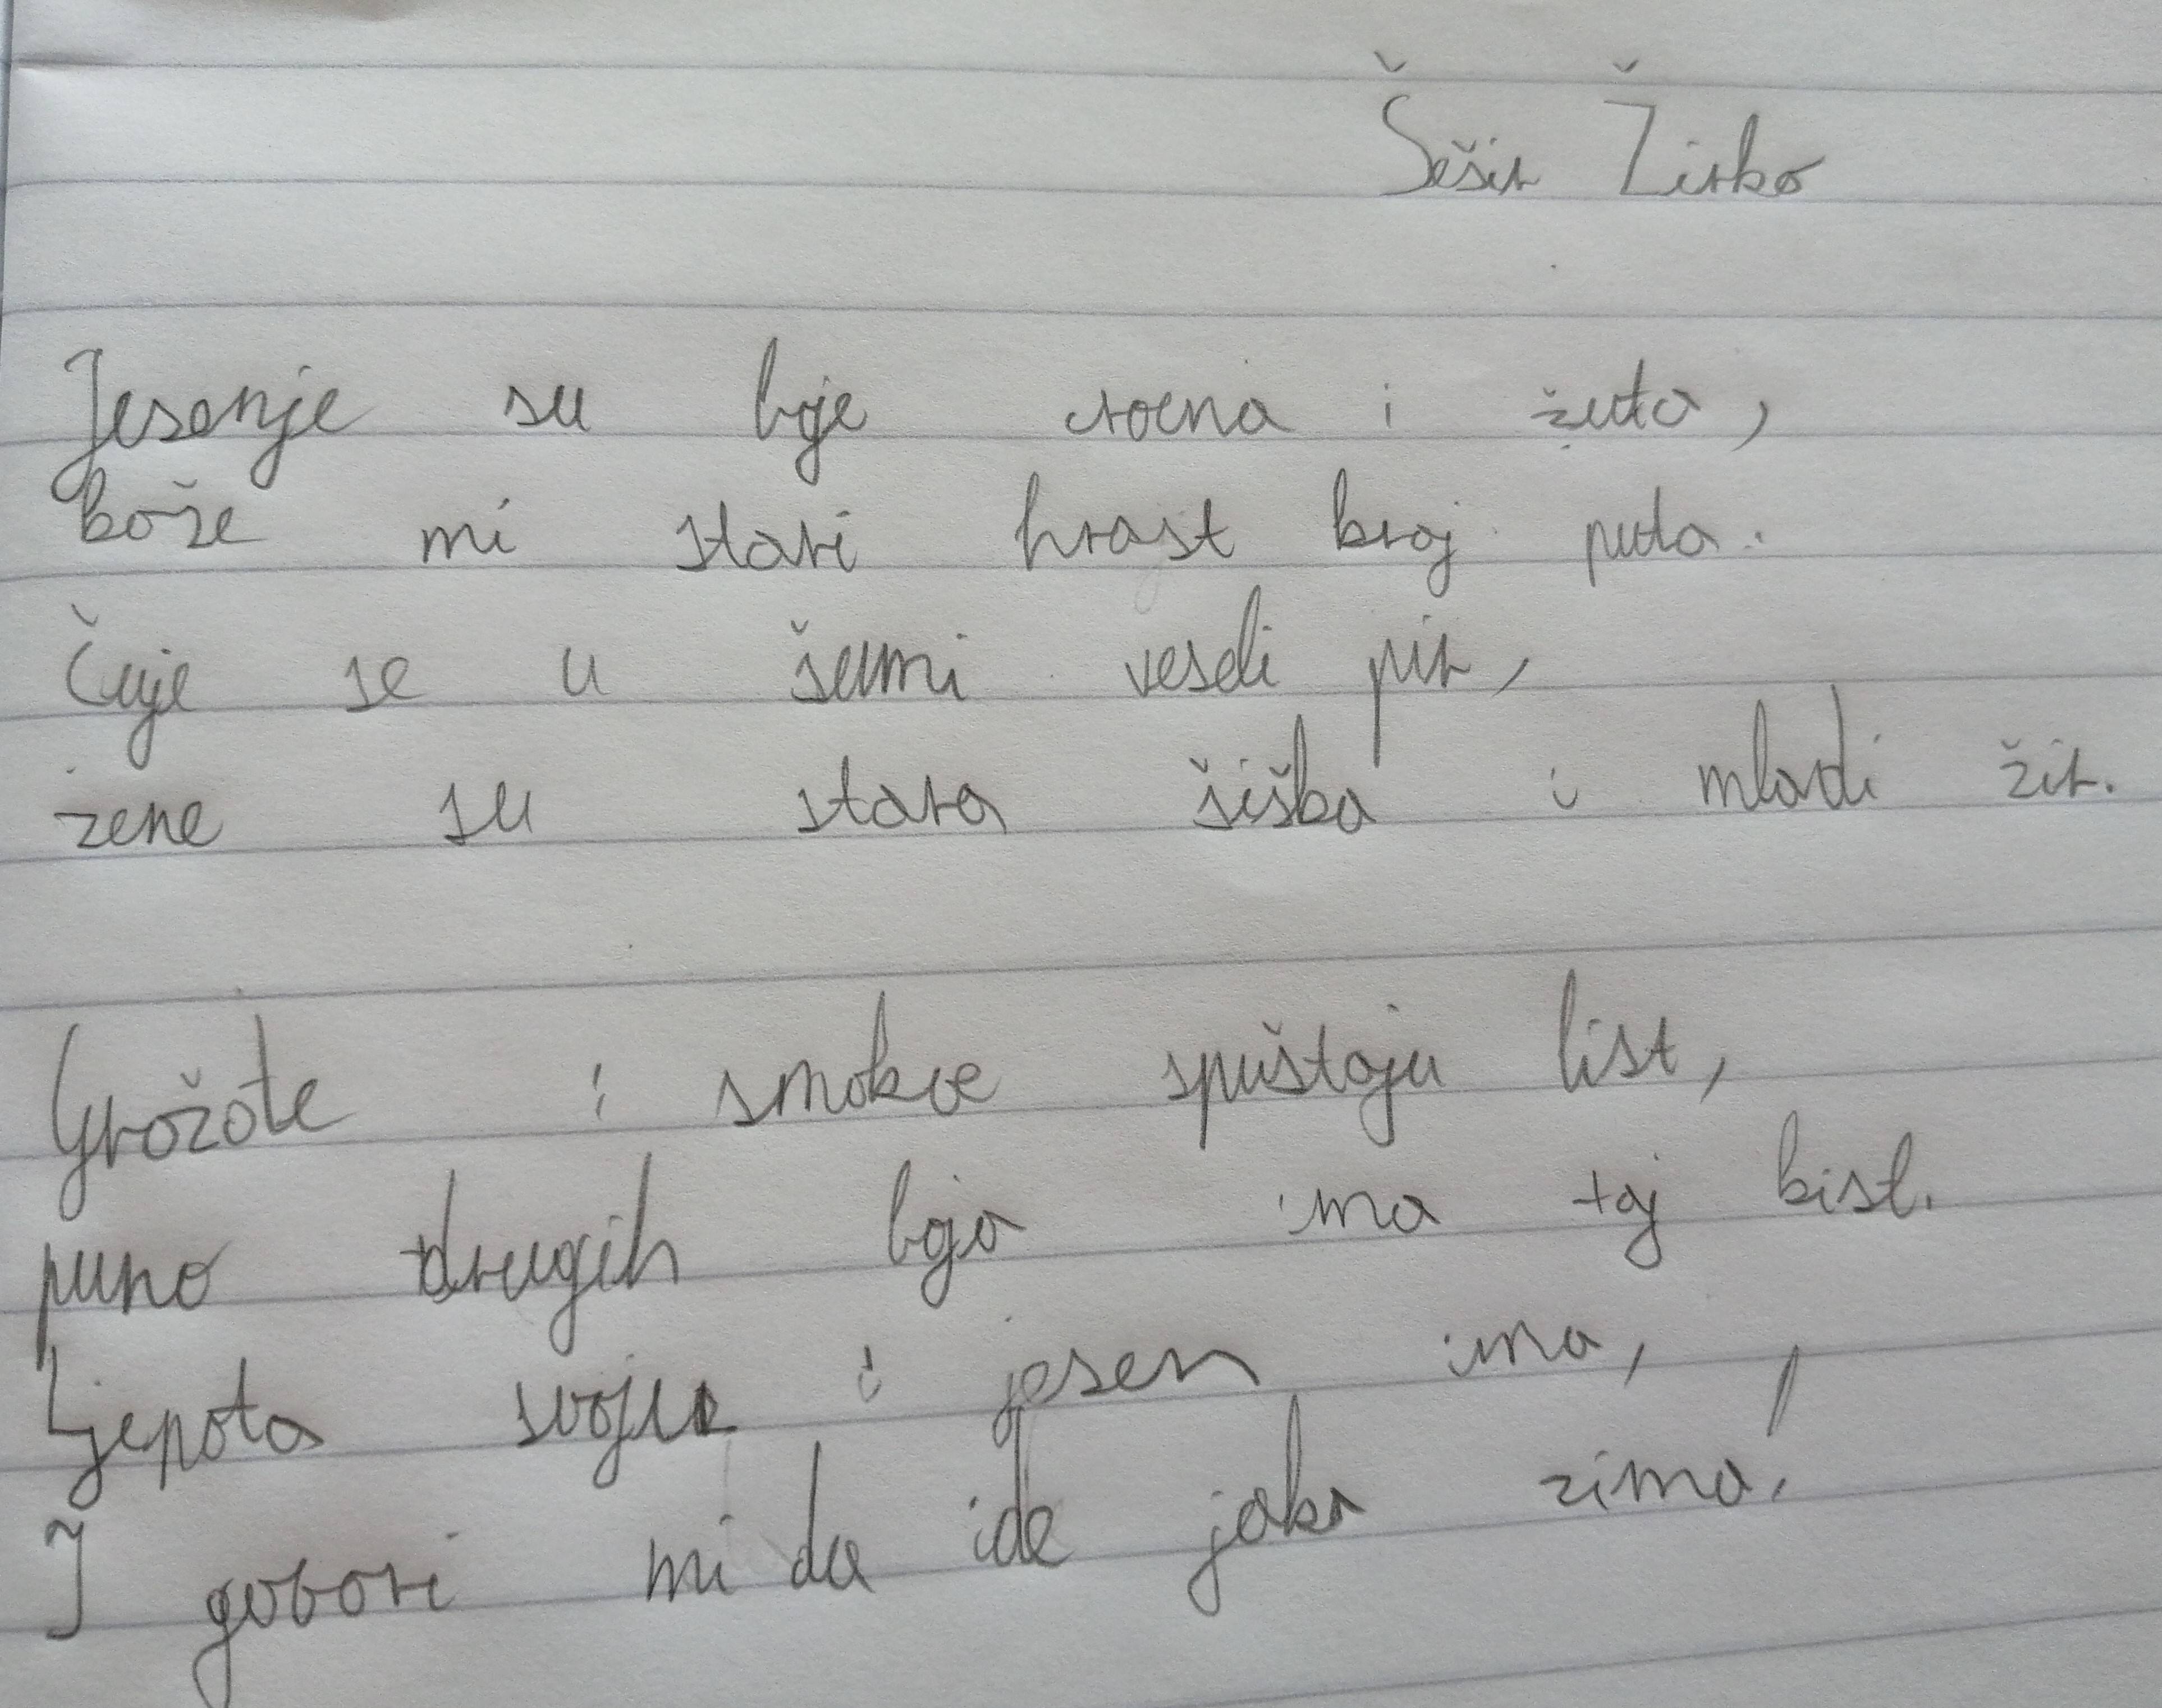 Šešir Žirko
Jesenje su boje crvena i žuta,
kaže mi stari hrast broj puta.
Čuje se u šumi veseli pir,
žene su stara šiška i mladi žir.
Grožđe i smokve spuštaju list,
puno drugih boja ima taj kist.
Ljepota svoju i jesen ima,
I govori mi da ide jaka zima!